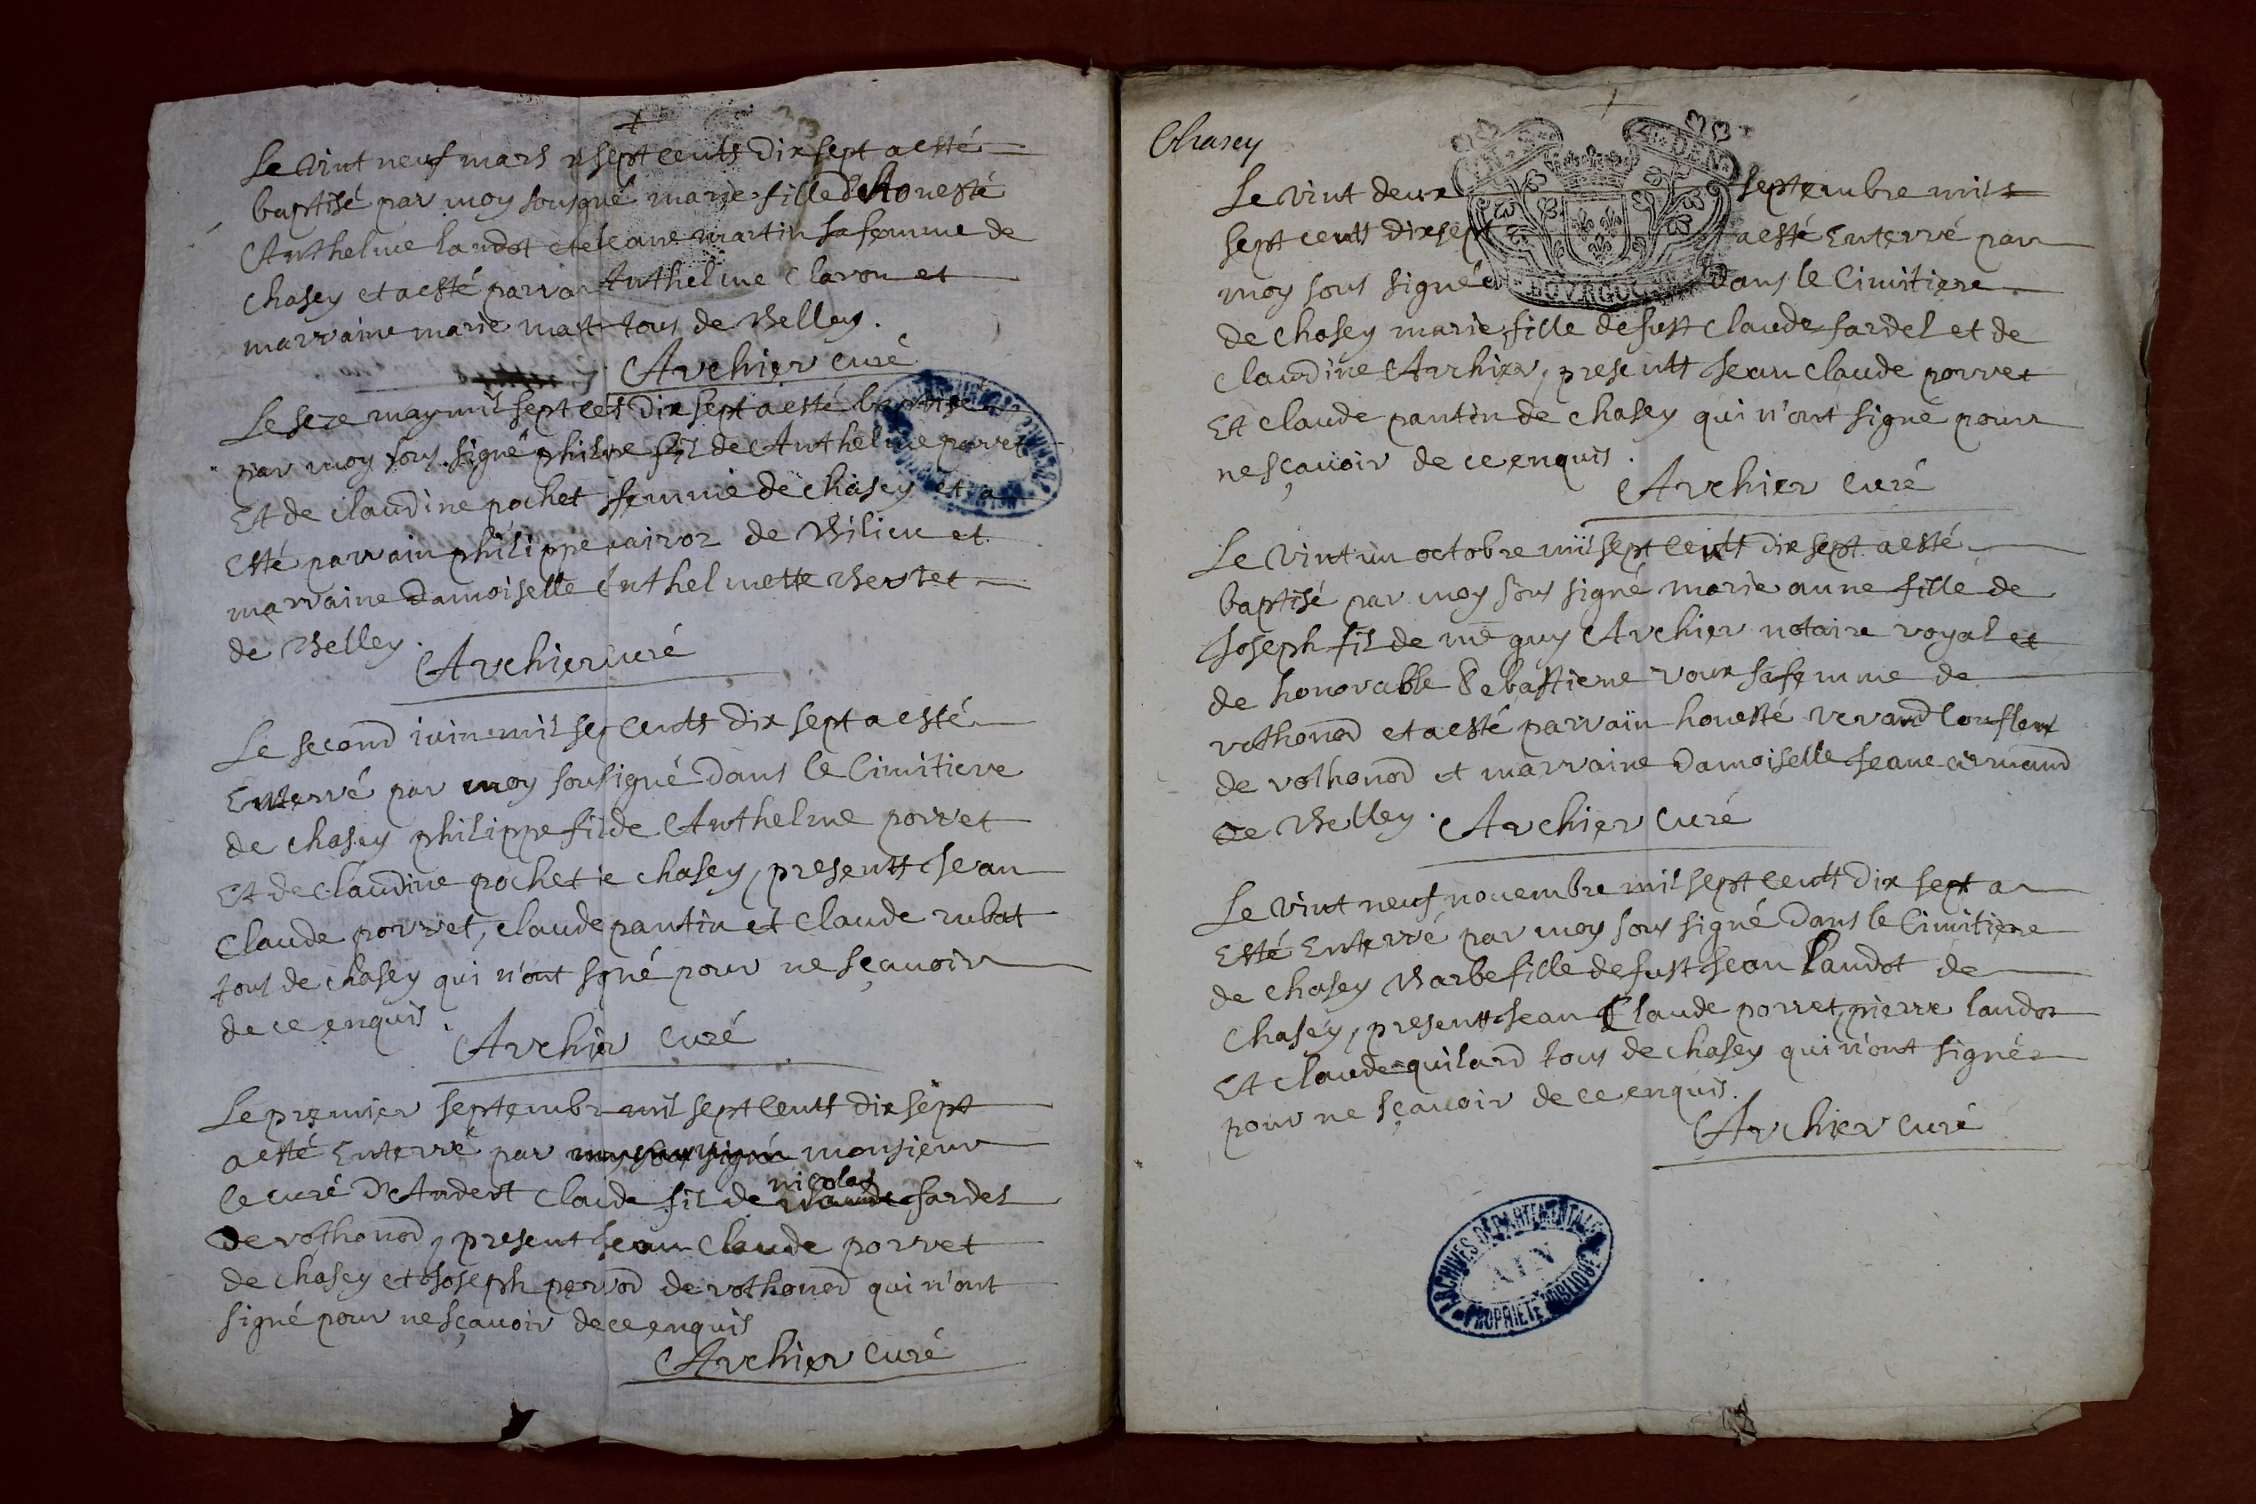 Le vint neuf mars sept cents dix sept a esté
baptisé par moy sousigné marie fille d'honesté
Anthelme landot et de Jeane martin sa femme de
chasey et a esté parrain Anthelme Claron et
marraine marie tous de Belley.
Archier curé
Le seze may mil sept cents dix sept a esté baptisé
par moy sous signé philipe fil de Anthelme porret
Et de claudine pochet femme de chasey et a
esté parrain philippe de Bilieu et
marraine damoiselle Enthelmette Bertet
de Belley.
Archier curé
Le second iuin mil sept cents dix sept a esté
Enterré par moy sousigné dans le Cimitiere
de chasey philippe fil de Anthelme porret
Et de claudine pochet de chasey, presents Jean
Claude porret, claude pantin et Claude rubat
tous de chasey qui n'ont signé pour ne sçauoir
de ce enquis.
Archier curé
Le premier septembre mil sept cents dix sept
a esté Enterré par monsieur
le curé D'Andert Claude fil de nicolas fardel
de rothonod, present Jean Claude porret
de chasey et Joseph perrod de rothonod qui n'ont
signé pour ne sçauoir de ce enquis
Archier curé
Chasey
GEN DEN
BOVRGOGNE
Le vint deux septembre mil
sept cents dix sept a esté Enterré par
moy sous signé dans le Cimitiere
de chasey marie fille de fust Claude fardel et de
Claudine Archier, presents Jean Claude porret
Et claude pantin de chasey qui n'ont signé pour
ne sçauoir de ce enquis.
Archier curé
Le vint un octobre mil sept cents dix sept a esté
baptisé par moy sous signé marie anne fille de
Joseph fil de me guy Archier notaire royal et
de honorable Sebastiene roux sa femme de
rothonod et a esté parrain honesté
de rothonod et marraine damoiselle Jeane armand
de Belley.
Archier curé
Le vint neuf nouembre mil sept cents dix sept a
Esté Enterré par moy sous signé dans le Cimitiere
de chasey Barbe fille de fust Jean Landot de
Chasey, presents Jean Claude porret, pierre landot
Et claude quilard tous de chasey qui n'ont signé
pour ne sçauoir de ce enquis.
Archier curé
ARCHIVES DÉPARTEMENTALES
AIN
PROPRIÉTÉ PUBLIQUE